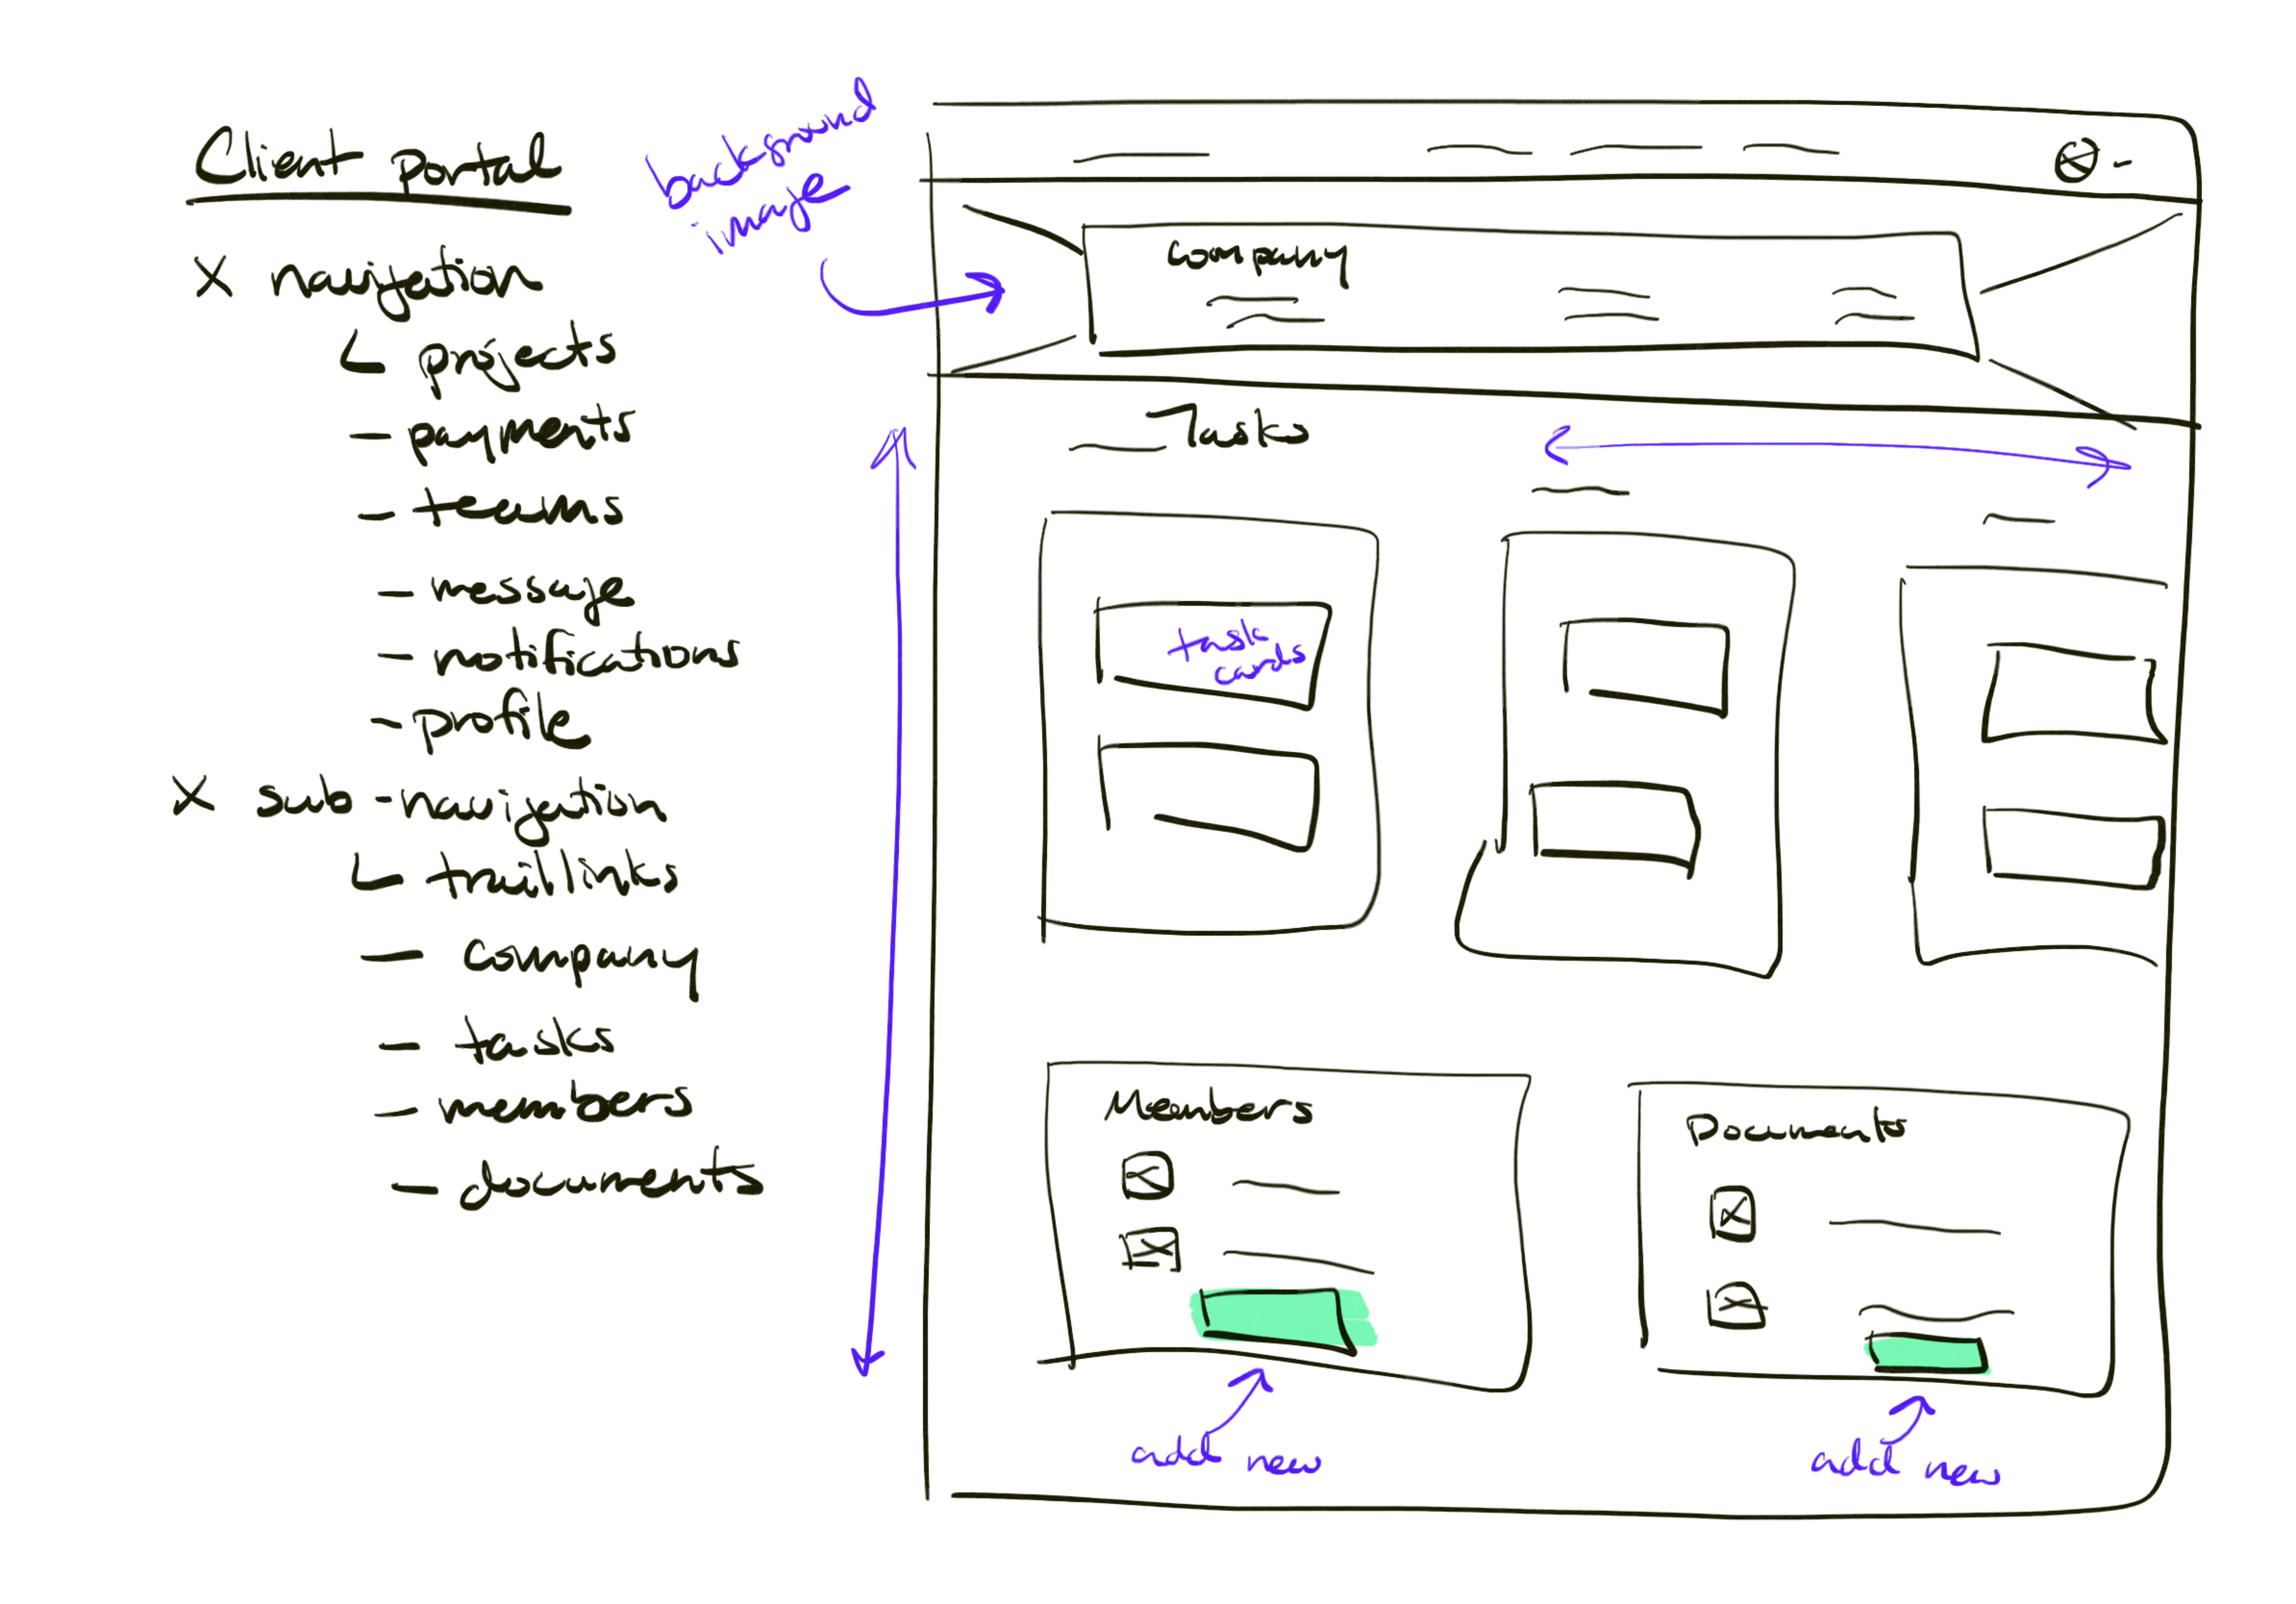 Client portal
x navigation
projects
- payments
- teams
- message
- notifications
- profile
x sub-navigation
trail links
- company
- tasks
- members
- documents
background
image
company
Tasks
task
cards
Members
Documents
add new
add new